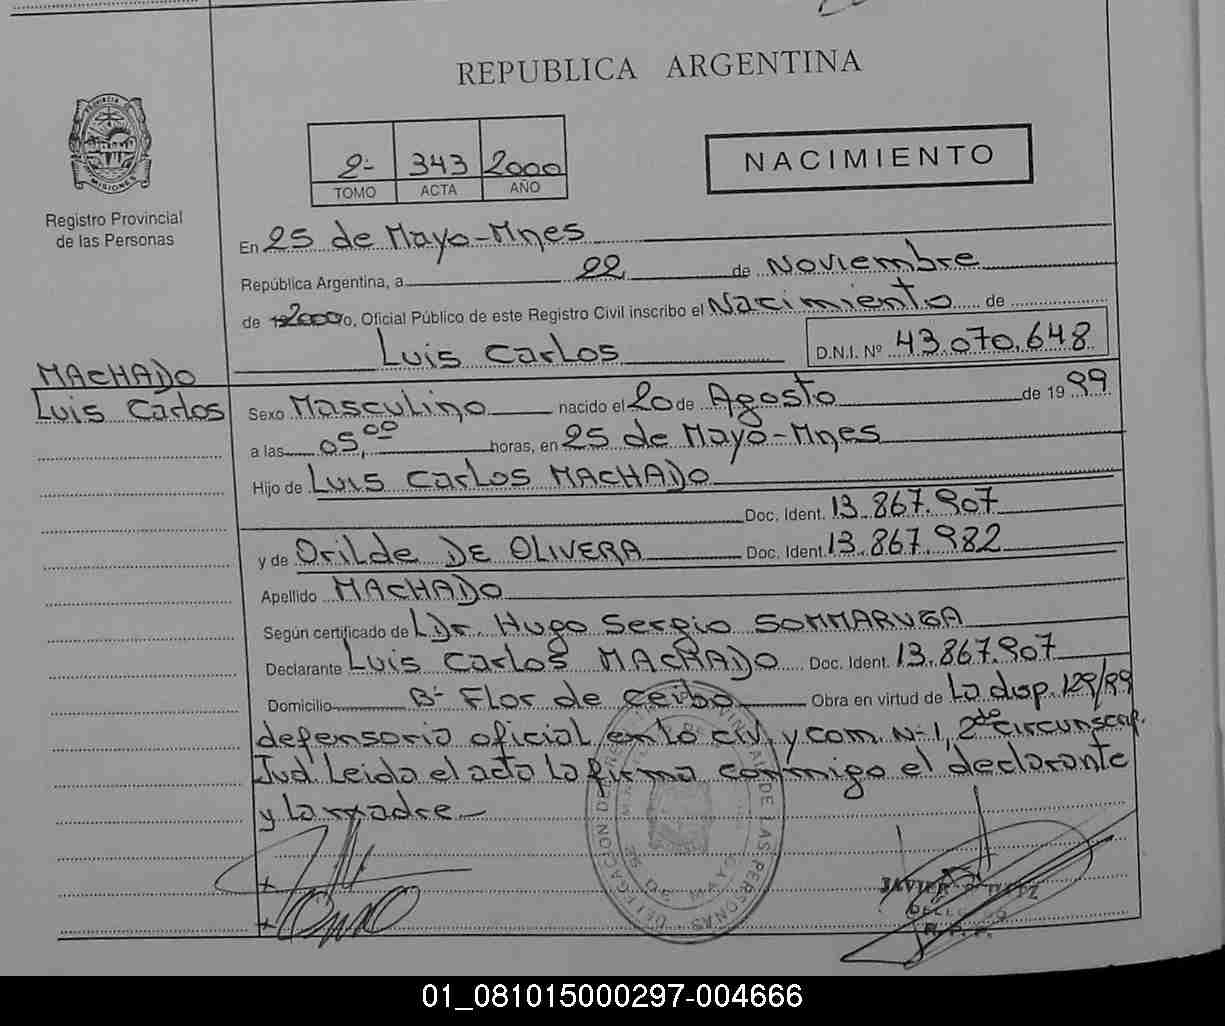 REPUBLICA ARGENTINA
PROVINCIA DE MISIONES
Registro Provincial
de las Personas
2- 343 2000
TOMO ACTA AÑO
NACIMIENTO
En 25 de Mayo-Mnes
República Argentina, a 22 de Noviembre
de 2000, Oficial Público de este Registro Civil inscribo el Nacimiento de
Luis Carlos D.N.I. Nº 43.070.648
MACHADO
Luis Carlos
Sexo Masculino nacido el 20 de Agosto de 19 99
a las 05,00 horas, en 25 de Mayo-Mnes
Hijo de Luis Carlos MACHADO
Doc. Ident. 13.867.907
y de Orilde DE OLIVERA Doc. Ident. 13.867.982
Apellido MACHADO
Según certificado de L Dr. Hugo Sergio SOMMARUGA
Declarante Luis Carlos MACHADO Doc. Ident. 13.867.907
Domicilio B- Flor de Ceibo Obra en virtud de La disp. 129/99
defensoria oficial en lo civ. y com. N-1, 2da circunscrip.
Jud. Leida el acta la firma conmigo el declarante
y la madre
DELEGACION DEL REGISTRO PROVINCIAL DE LAS PERSONAS
25 DE MAYO
JAVIER
DELEGADO
R. P. P.
01_081015000297-004666